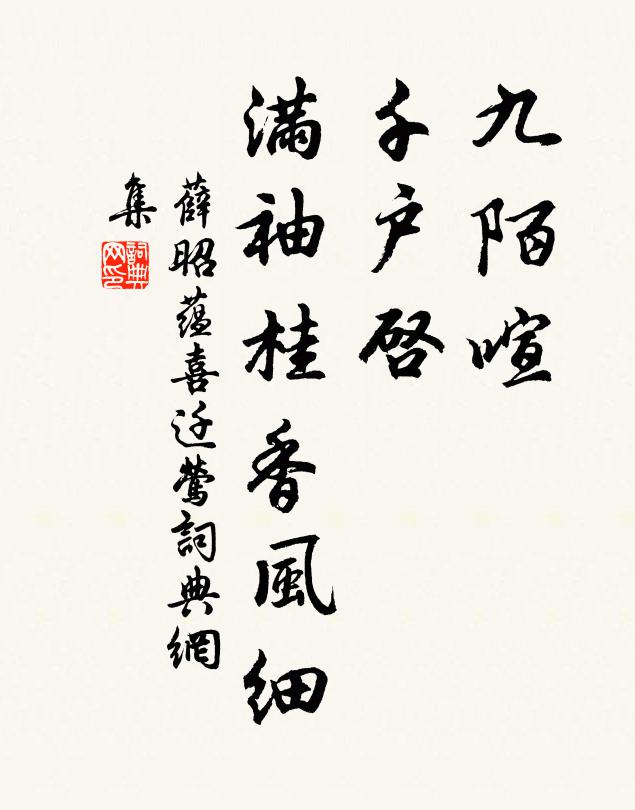 九陌喧
千户啓
满袖桂香風细
薛昭蕴喜迁莺詞典網
集
詞典网印